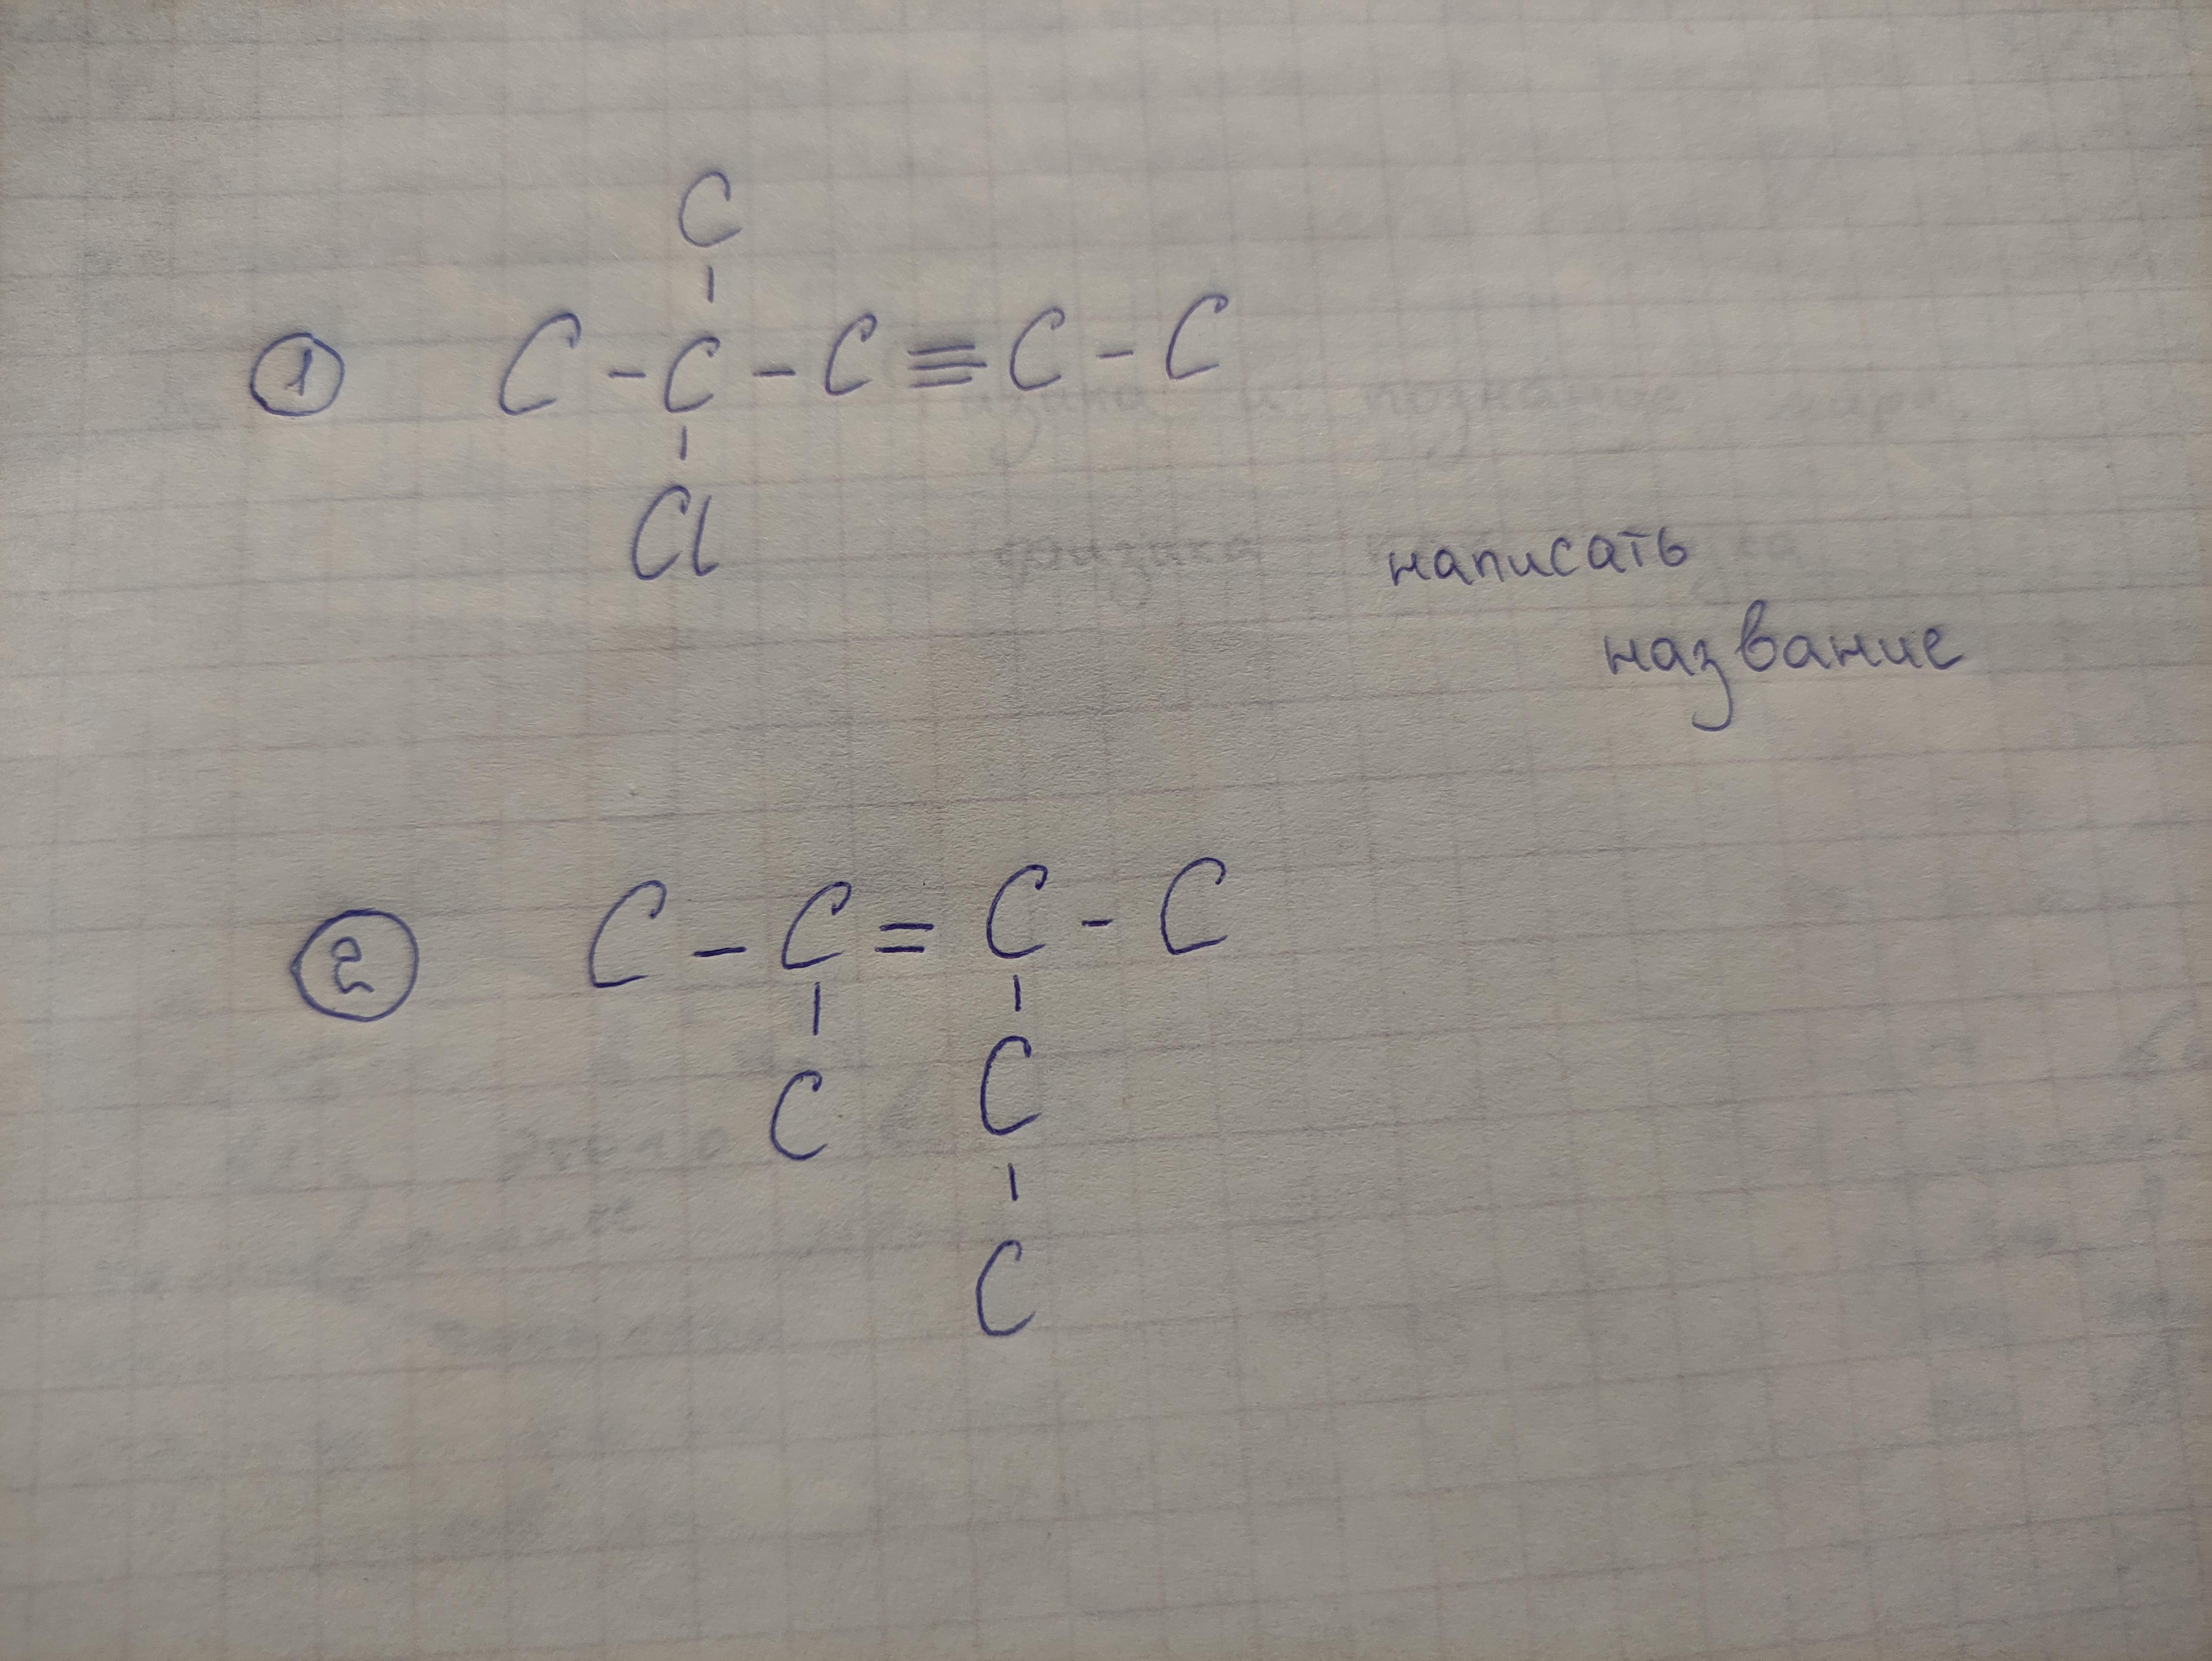 C
① C - C - C ≡ C - C
Cl
написать
название
② C - C = C - C
C C
C